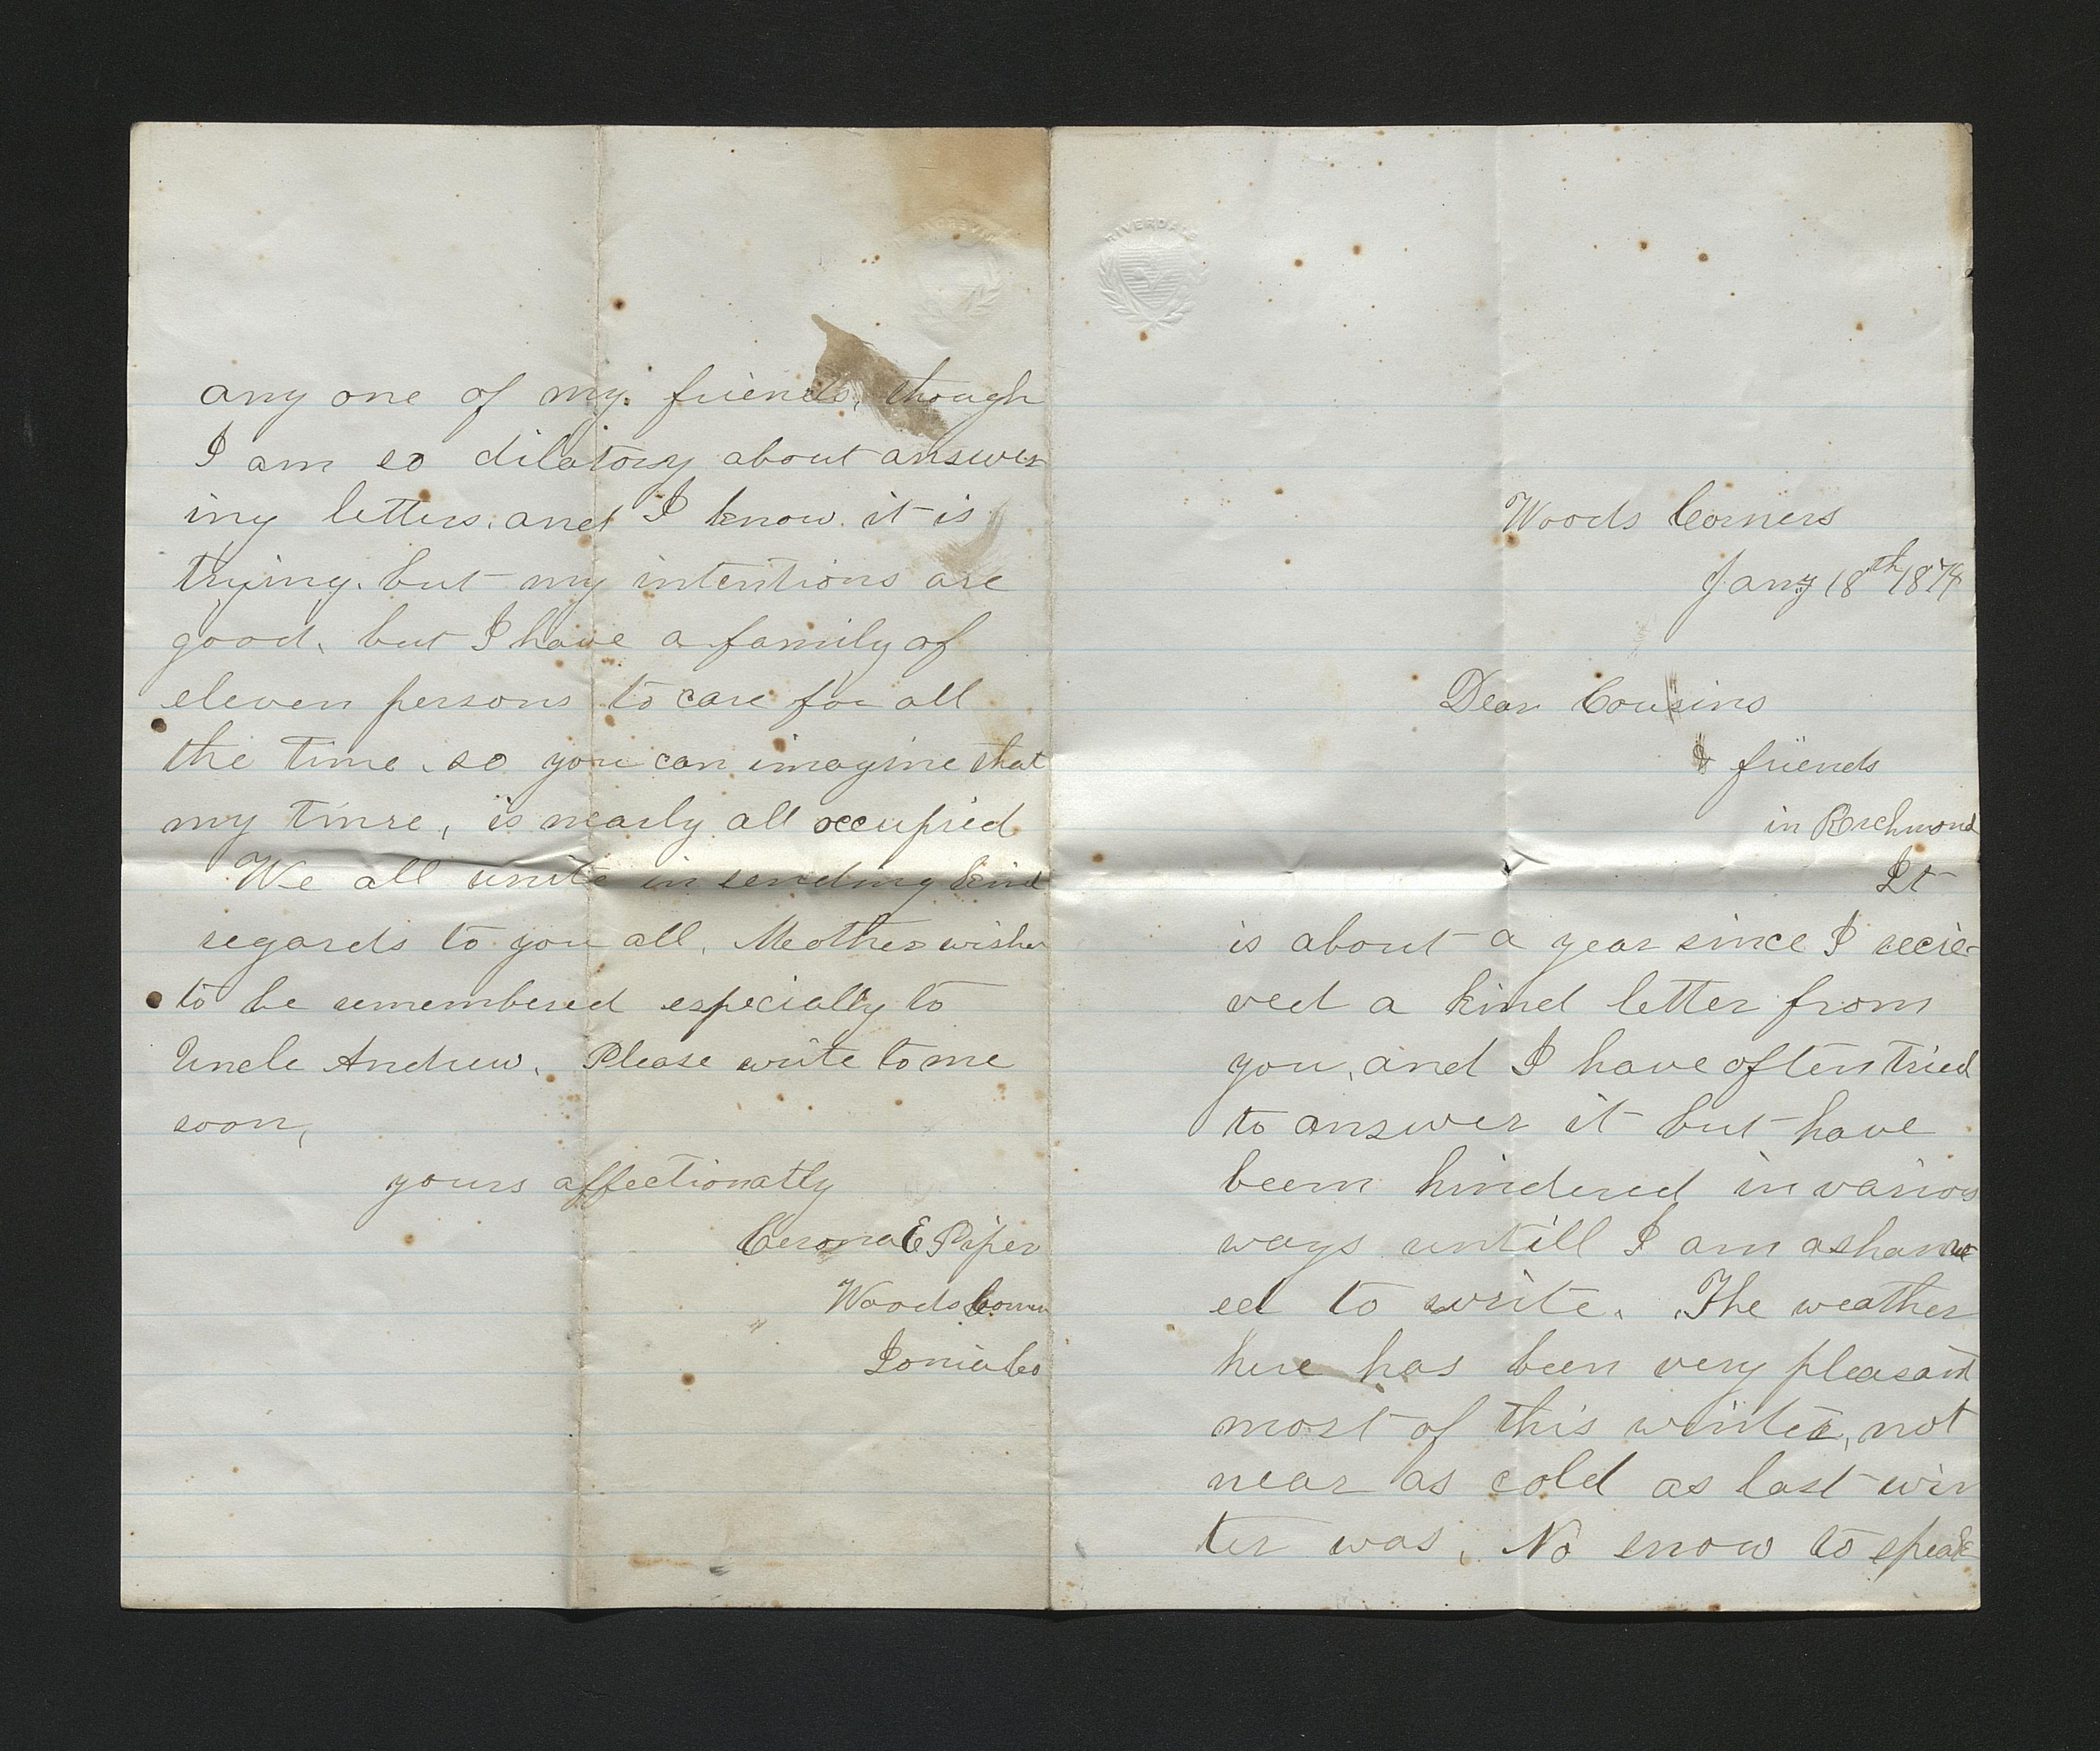 RIVERDALE
Woods Corners
Jany 18th 1874
Dear Cousins
& friends
in Richmond
It
is about a year since I recie-
ved a kind letter from
you, and I have often tried
to answer it but have
been hindered in various
ways untill I am asham
ed to write. The weather
here has been very pleasant
most of this winter, not
near as cold as last win
ter was. No snow to speak
any one of my friends, though
I am so dilatory about answer
ing letters, and I know it is
trying, but my intentions are
good, but I have a family of
eleven persons to care for all
the time, so you can imagine that
my time, is nearly all occupied
We all unite in sending kind
regards to you all. Mother wishes
to be remembered especially to
Uncle Andrew. Please write to me
soon,
yours affectionatly
E Piper
Woods Corners
Ionia Co